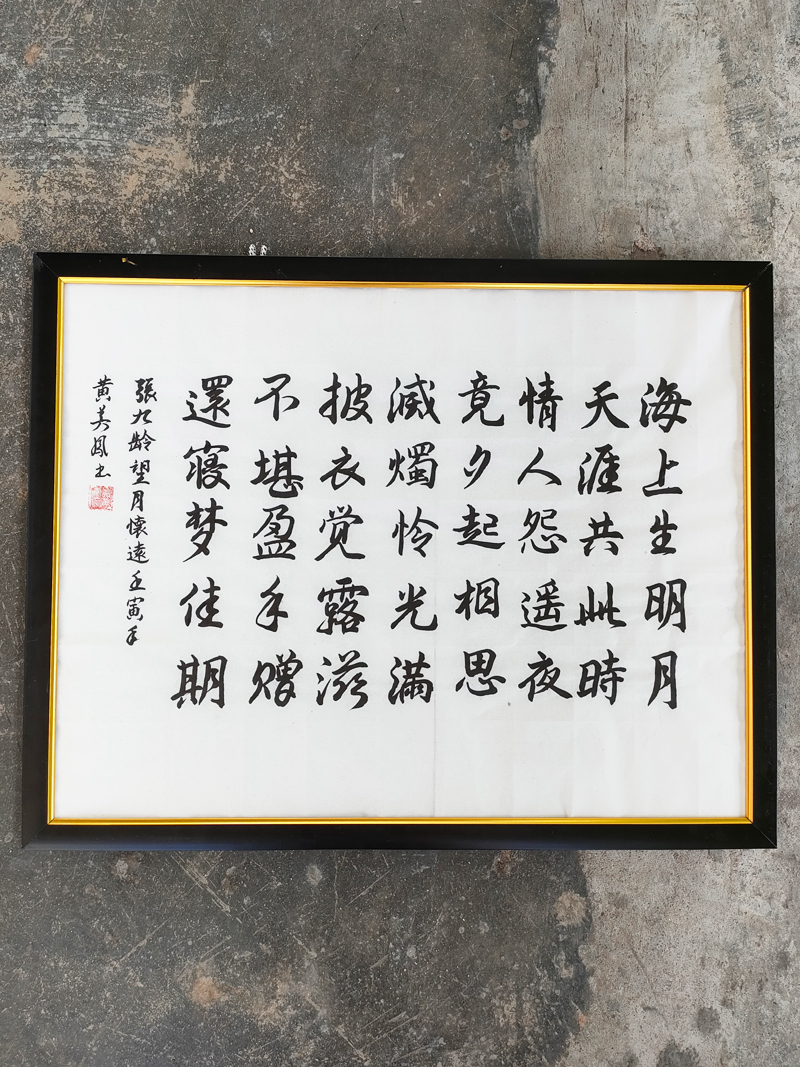 海上生明月
天涯共此時
情人怨遥夜
竟夕起相思
滅燭怜光满
披衣觉露滋
不堪盈手赠
還寝梦佳期
張九龄望月懷遠壬寅年
黄美凤书